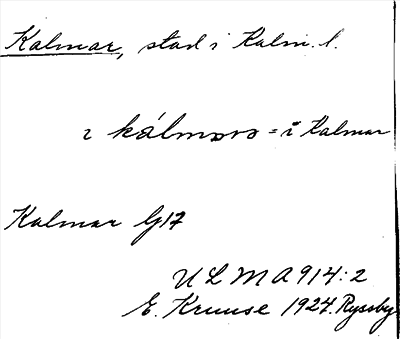 Kalmar, stad i Kalm. l.
ı kálmarə = i Kalmar
Kalmar G17
ULMA 914:2
E. Kruuse 1924. Ryssby